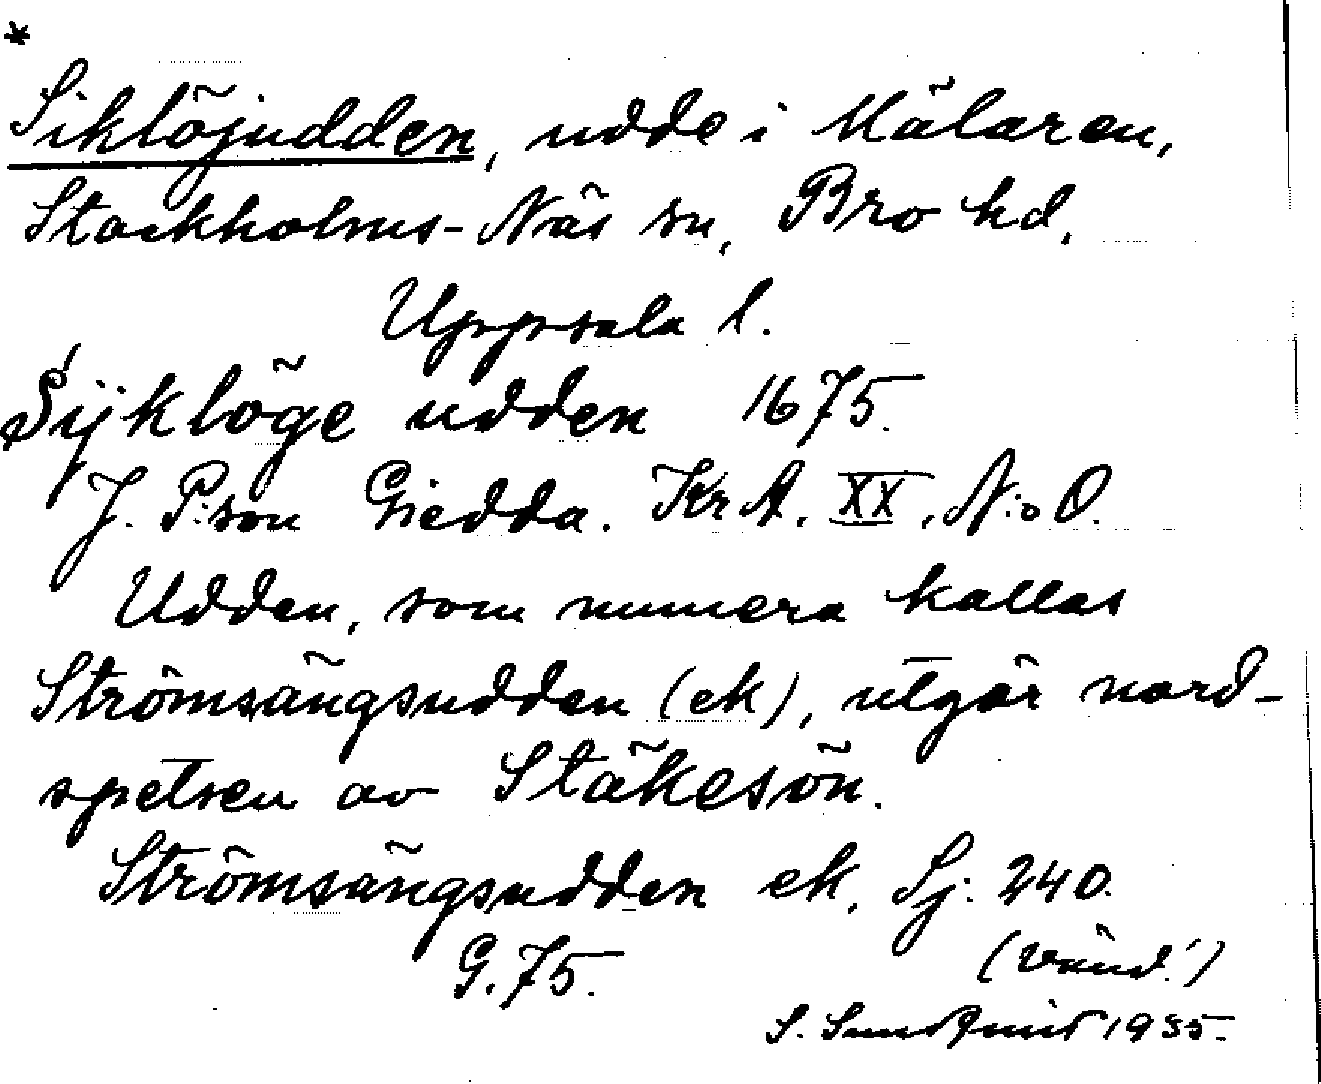 *
Siklöjudden, udde i Mälaren,
Stockholms-Näs sn, Bro hd,
Uppsala l.
Sÿklöge udden 1675.
J. P:son Giedda. KrA. XX, N:o O.
Udden, som numera kallas
Strömsängsudden (ek), utgör nord-
spetsen av Stäkesön.
Strömsängsudden ek. Sj: 240.
G. 75.
(vänd!)
S. Sundqvist 1935.